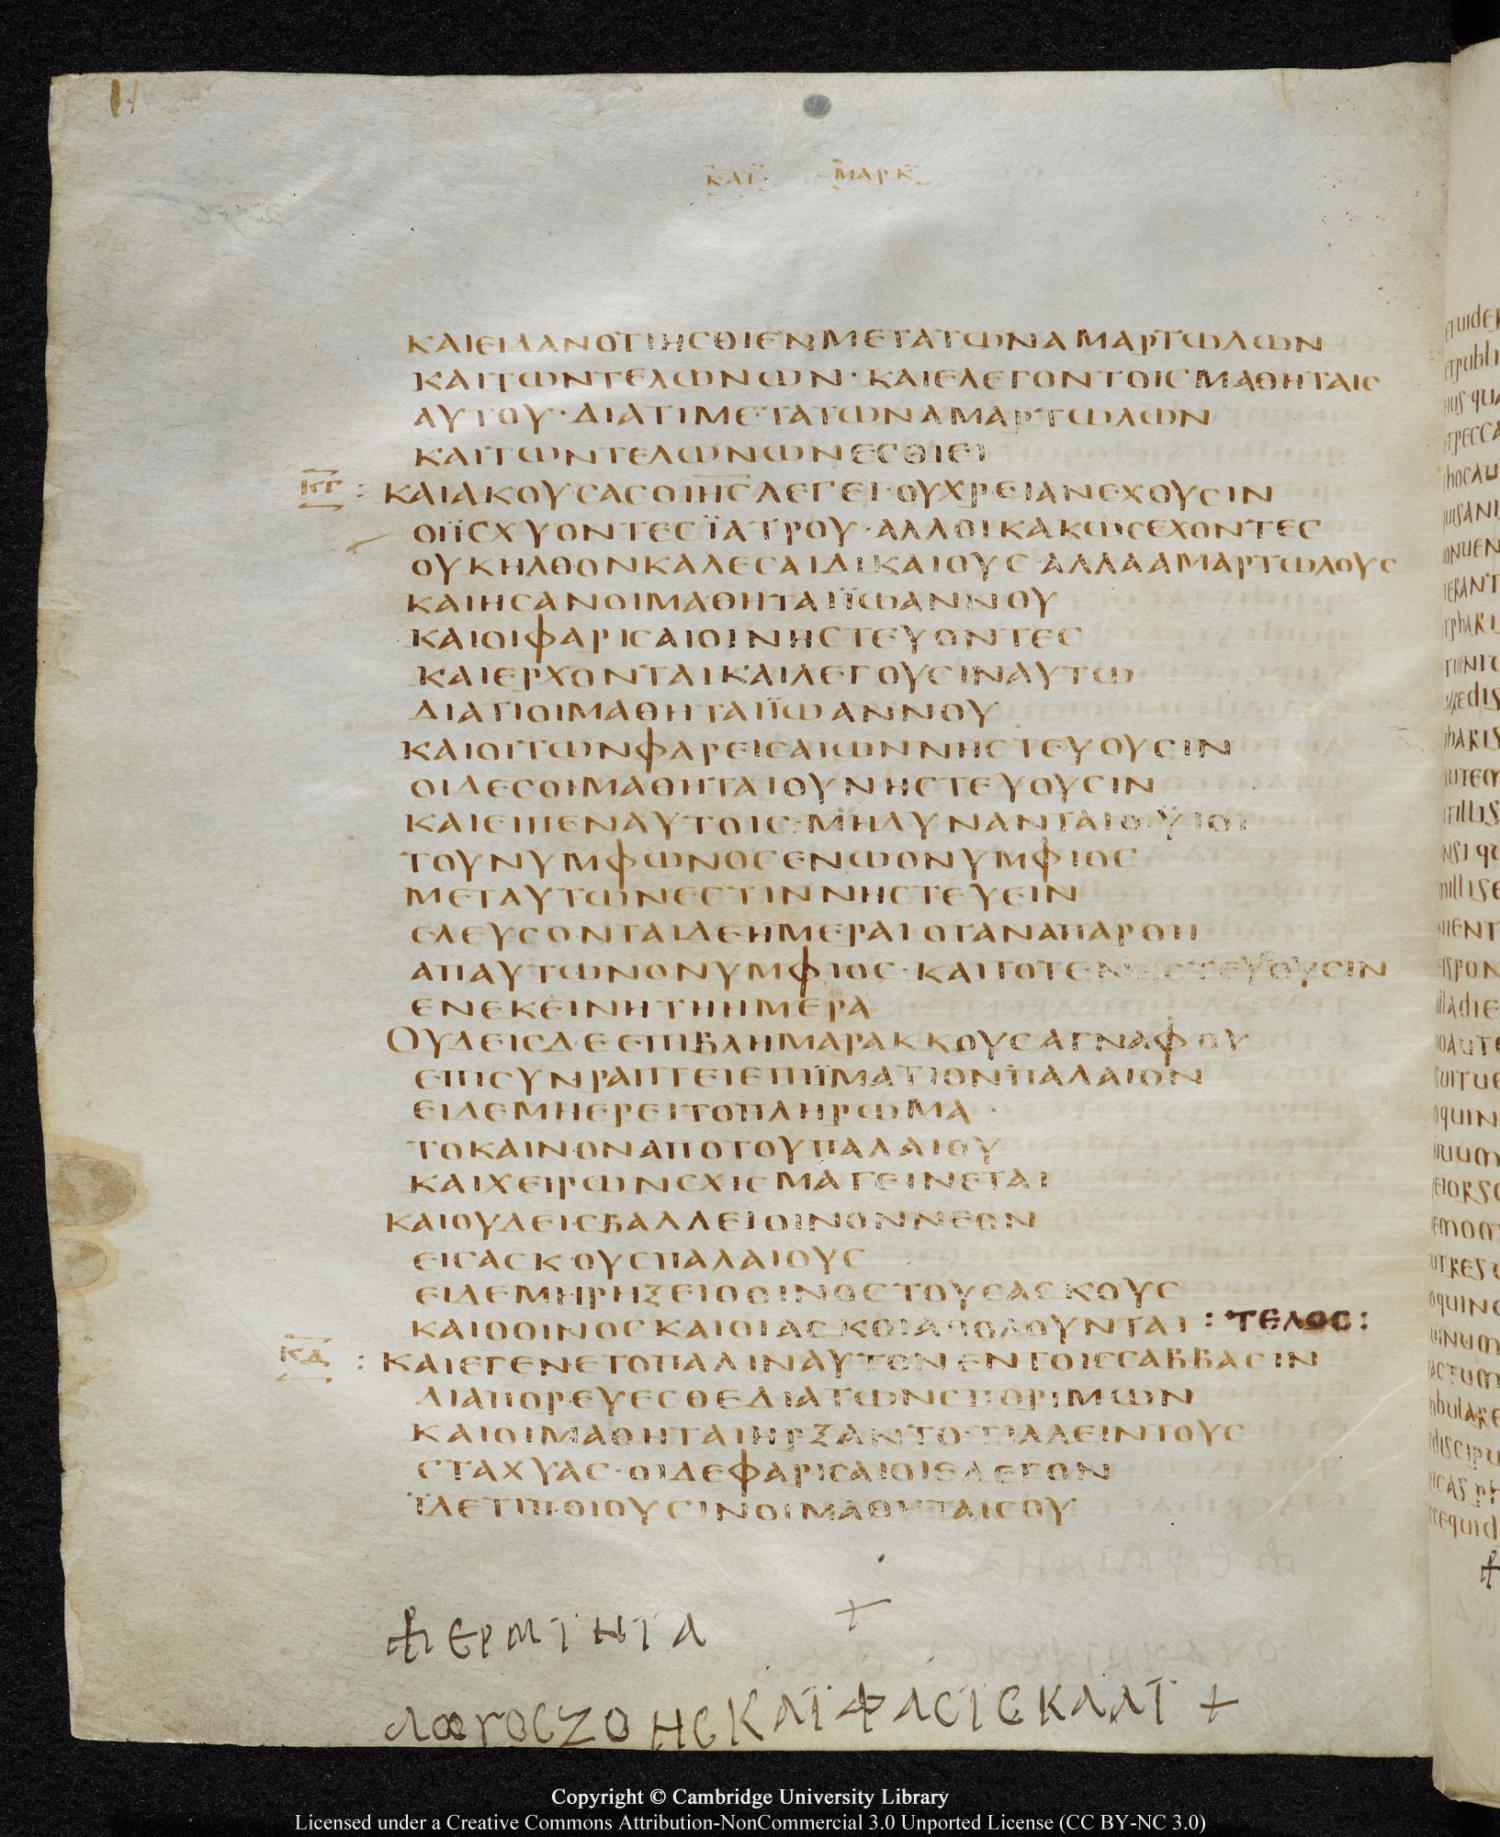 ΚΑΤ ΜΑΡΚ
ΚΑΙΕΙΔΑΝΟΤΙΗΣΘΙΕΝΜΕΤΑΤΩΝΑΜΑΡΤΩΛΩΝ
ΚΑΙΤΩΝΤΕΛΩΝΩΝ· ΚΑΙΕΛΕΓΟΝΤΟΙΣΜΑΘΗΤΑΙΣ
ΑΥΤΟΥ·ΔΙΑΤΙΜΕΤΑΤΩΝΑΜΑΡΤΩΛΩΝ
ΚΑΙΤΩΝΤΕΛΩΝΩΝΕΣΘΙΕΙ
ΚΓ : ΚΑΙΑΚΟΥΣΑΣΟΙΗΣΛΕΓΕΙ·ΟΥΧΡΕΙΑΝΕΧΟΥΣΙΝ
ΟΙΪΣΧΥΟΝΤΕΣΪΑΤΡΟΥ·ΑΛΛΟΙΚΑΚΩΣΕΧΟΝΤΕΣ
ΟΥΚΗΛΘΟΝΚΑΛΕΣΑΙΔΙΚΑΙΟΥΣ·ΑΛΛΑΑΜΑΡΤΩΛΟΥΣ
ΚΑΙΗΣΑΝΟΙΜΑΘΗΤΑΙΪΩΑΝΝΟΥ
ΚΑΙΟΙΦΑΡΙΣΑΙΟΙΝΗΣΤΕΥΟΝΤΕΣ
ΚΑΙΕΡΧΟΝΤΑΙΚΑΙΛΕΓΟΥΣΙΝΑΥΤΩ
ΔΙΑΤΙΟΙΜΑΘΗΤΑΙΪΩΑΝΝΟΥ
ΚΑΙΟΙΤΩΝΦΑΡΕΙΣΑΙΩΝΝΗΣΤΕΥΟΥΣΙΝ
ΟΙΔΕΣΟΙΜΑΘΗΤΑΙΟΥΝΗΣΤΕΥΟΥΣΙΝ
ΚΑΙΕΙΠΕΝΑΥΤΟΙΣ·ΜΗΔΥΝΑΝΤΑΙΟΙΫΙΟΙ
ΤΟΥΝΥΜΦΩΝΟΣΕΝΩΟΝΥΜΦΙΟΣ
ΜΕΤΑΥΤΩΝΕΣΤΙΝΝΗΣΤΕΥΕΙΝ
ΕΛΕΥΣΟΝΤΑΙΔΕΗΜΕΡΑΙΟΤΑΝΑΠΑΡΘΗ
ΑΠΑΥΤΩΝΟΝΥΜΦΙΟΣ·ΚΑΙΤΟΤΕΝΗΣΤΕΥΟΥΣΙΝ
ΕΝΕΚΕΙΝΗΤΗΗΜΕΡΑ
ΟΥΔΕΙΣΔΕΕΠΙΒΛΗΜΑΡΑΚΚΟΥΣΑΓΝΑΦΟΥ
ΕΠΙΣΥΝΡΑΠΤΕΙΕΠΙΪΜΑΤΙΟΝΠΑΛΑΙΟΝ
ΕΙΔΕΜΗΕΡΕΙΤΟΠΛΗΡΩΜΑ·
ΤΟΚΑΙΝΟΝΑΠΟΤΟΥΠΑΛΑΙΟΥ
ΚΑΙΧΕΙΡΩΝΣΧΙΣΜΑΓΕΙΝΕΤΑΙ
ΚΑΙΟΥΔΕΙΣΒΑΛΛΕΙΟΙΝΟΝΝΕΟΝ
ΕΙΣΑΣΚΟΥΣΠΑΛΑΙΟΥΣ
ΕΙΔΕΜΗΡΗΞΕΙΟΟΙΝΟΣΤΟΥΣΑΣΚΟΥΣ
ΚΑΙΟΟΙΝΟΣΚΑΙΟΙΑΣΚΟΙΑΠΟΛΟΥΝΤΑΙ :ΤΕΛΟΣ:
ΚΔ : ΚΑΙΕΓΕΝΕΤΟΠΑΛΙΝΑΥΤΟΝΕΝΤΟΙΣΣΑΒΒΑΣΙΝ
ΔΙΑΠΟΡΕΥΕΣΘΕΔΙΑΤΩΝΣΠΟΡΙΜΩΝ
ΚΑΙΟΙΜΑΘΗΤΑΙΗΡΞΑΝΤΟ·ΤΙΛΛΕΙΝΤΟΥΣ
ΣΤΑΧΥΑΣ·ΟΙΔΕΦΑΡΙΣΑΙΟΙΕΛΕΓΟΝ
ΪΔΕΤΙΠΟΙΟΥΣΙΝΟΙΜΑΘΗΤΑΙΣΟΥ
ΕΡΜΙΝΙΑ +
ΛΟΓΟΣΖΟΗΣΚΑΙΦΑΣΙΣΚΑΛΙ +
Copyright © Cambridge University Library
Licensed under a Creative Commons Attribution-NonCommercial 3.0 Unported License (CC BY-NC 3.0)